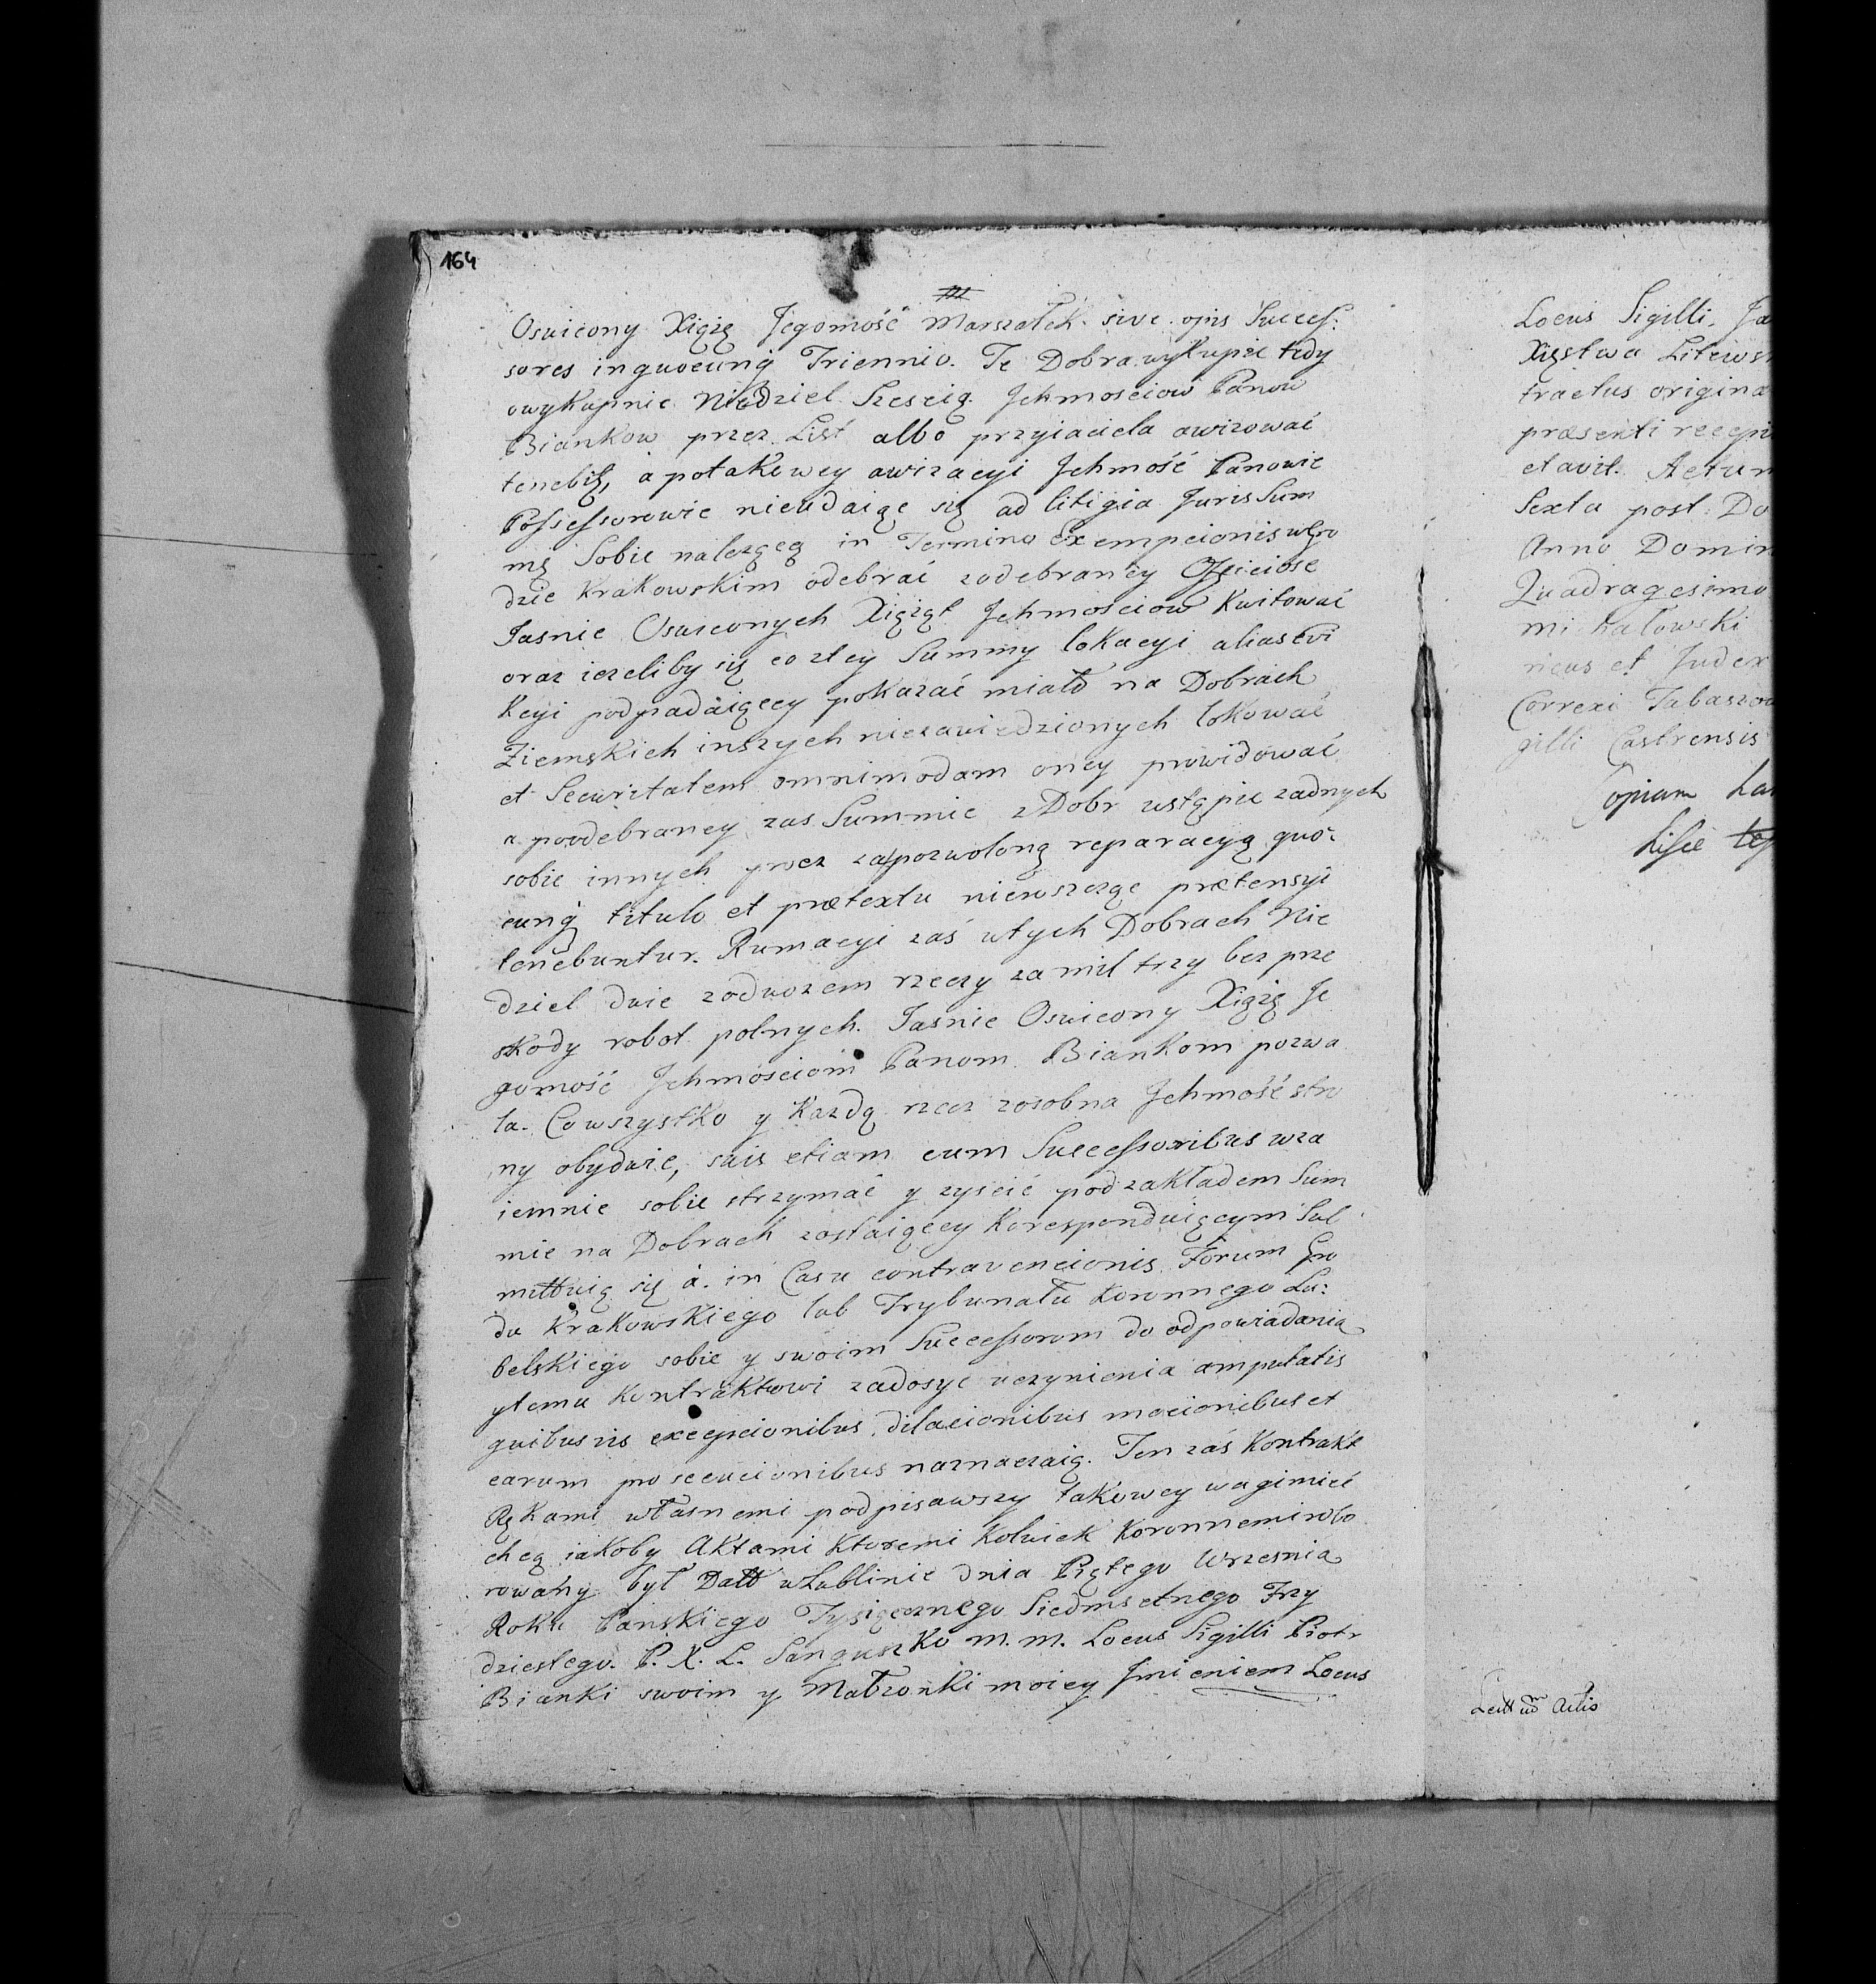 164
Oswiecony Xiąże Jegomość Marszałek sive ejus Succes:
sores in quocunq Triennio. Te Dobra wykupie tedy
o wykupnie Niedziel Szescią Jchmosciow Panow
Biankow przez List albo przyiaciela awizować
tenebit, a po takowey awizacyi Jchmość Panowie
Possessorowie nieudaiąc się ad litigia Juris Sum
mę Sobie nalezącą in Termino Exempcionis w Gro
dzie Krakowskim odebrać z odebraney
Jasnie Oswieconych Xiążąt Jchmosciow Kwitować
oraz iezeliby się co z tey Summy lokacyi alias Evi
kcyi podpadaiącey pokazać miało na Dobrach
Ziemskich inszych niezawiedzionych lokować
et Securitatem omnimodam oney prowidować
a po odebraney zas Summie z Dobr ustąpic zadnych
sobie innych procz za pozwoloną reparacyą quo:
cunq titulo et prætextu niewszcząc prætensyi
tenebuntur. Rumacyi zaś w tych Dobrach Nie
dziel dwie z odwozem rzeczy za mil trzy bez prze
szkody robot polnych. Jasnie Oswiecony Xiążę Je
gomość Jchmościom Panom Biankom pozwa
la. Co wszystko y Kazdą rzecz zosobna Jchmość stro
ny obydwie, suis etiam cum Successoribus wza
iemnie sobie strzymać y zyscić pod zakładem Sum
mie na Dobrach zostaiącey Korespondуiącym Sub
mittuią się a. in Casu contravencionis Forum Gro
du Krakowskiego lub Trybunału Koronnego Lu:
belskiego sobie y swoim Successorom do odpowiadania
y temu Kontraktowi zadosyc uczynienia amputatis
quibusvis excepcionibus, dilacionibus mocionibus et
earum prosecucionibus naznaczaią. Ten zaś Kontrakt
Rękami własnemi podpisawszy takowey wagi mieć
chcą iakoby Aktami Ktoremi Kolwiek Koronnemi robo
rowany był Datt w Lublinie dnia Piątego Wrzesnia
Roku Panskiego Tysiącznego Siedmsetnego Trzy
dziestego. P. X. L. Sanguszko m. m. Locus Sigilli Piotr
Bianki swoim y Małzonki moiey Jmieniem Locus
Locus Sigilli. Ja
Xięstwa Litews
tractus origina
præsenti recepi
etavit. Actum
Sexta post Do
Anno Domin
Quadragesimo
Michałowski
ricus et Judex
Correxi Tabaszow
gilli Castrensis
Copiam
Lect ad Actis